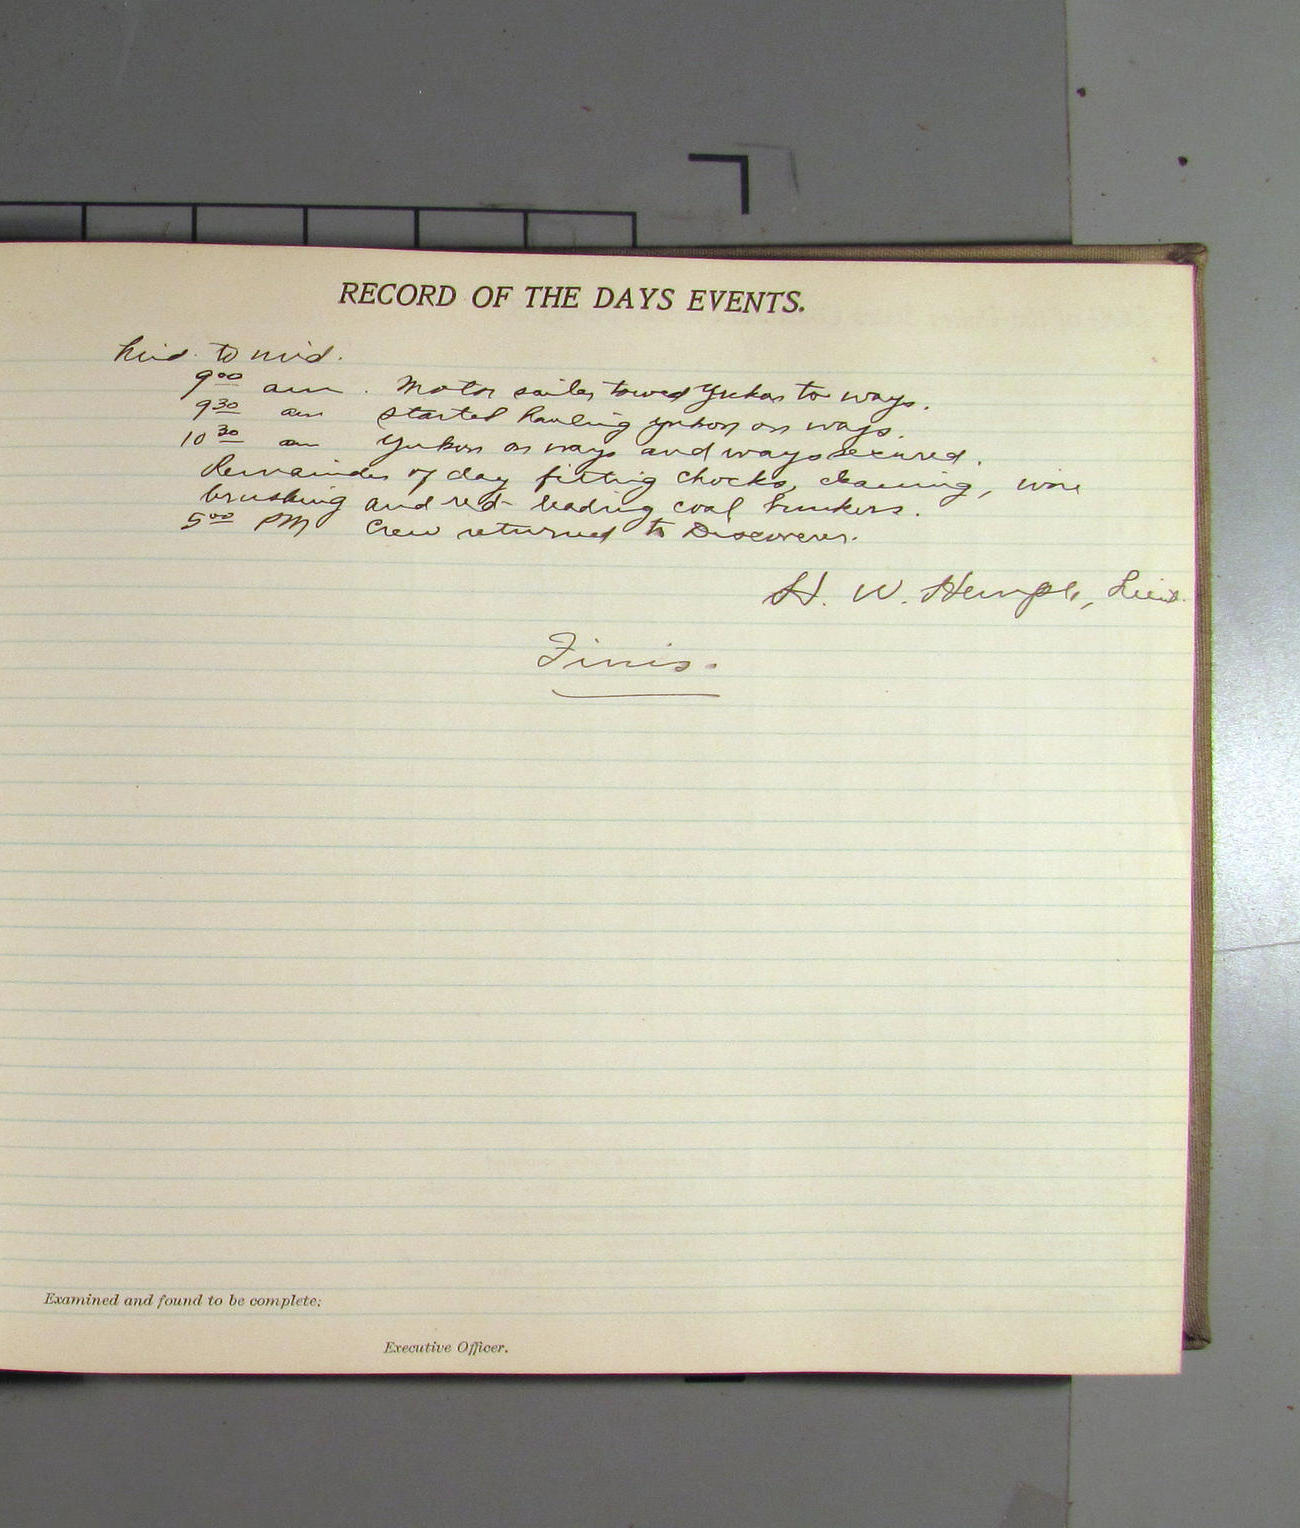 RECORD OF THE DAYS EVENTS.
Mid. to mid.
9 00 am. Motor sailer towed Yukon to ways.
9 30 am started hauling Yukon on ways.
10 30 am Yukon on ways and ways secured.
Remainder of day fitting chocks, cleaning, wire
brushing and red-leading coal bunkers.
5 00 PM Crew returned to Discoverer.
H. W. Hemple, Lieut.
Finis.
Examined and found to be complete:
Executive Officer.